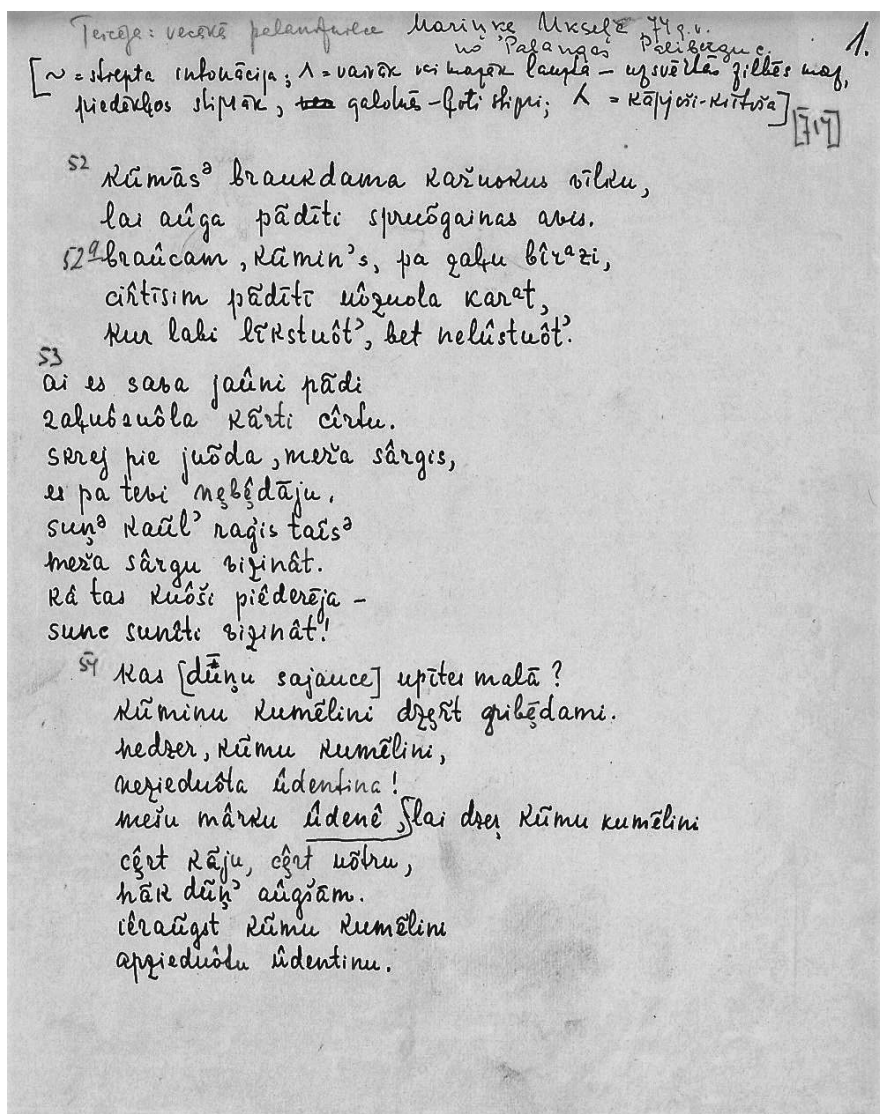 Teicēja: vecākā palandzniece Mariņķe Uksele 74 g.v.
no Palangas
1.
[~ = stiepta intonācija; ʌ = vairāk vai mazāk lauzta – uzsvērtās zilbēs maz,
piedēkļos stiprāk, galotnēs – ļoti stipri; = kāpjoši-krītoša]
[714]
52 kũmãsᵊ braukdama kažuokus vīlku,
lai aûga pãdīti spruõgainas avis.
52ª braûcam, kũmin's, pa zaļu bîrᵊzi,
cirtīsim pãdītī uôzuola karᵊt,
kur labi lĩkstuôt', bet nelûstuôt'.
53
ai es sava jaûni pãdi
zaļuôzuôla kãrti cîrtu.
skrej pie juõda, meža sârgis,
es pa tevi nębę̂dāju.
suņᵊ kaũl' raģis taîsᵊ
meža sârgu vizinât.
kâ tas kuôši piêderēja –
sunc sunîti vizinât!
54 kas [dũņu sajauce] upītes malā?
kũminu kumẽlini dzęr̃t gribę̄dami.
nedzer, kũmu kumẽlini,
neziêduôta ûdentina!
mešu mârku ûdenê, lai dzeŗ kũmu kumẽlini
cę̂rt kãju, cę̂rt uõtru,
nãk dũņ' aûgšām.
iêraũgst kũmu kumẽlini
apziêduôtu ûdentinu.